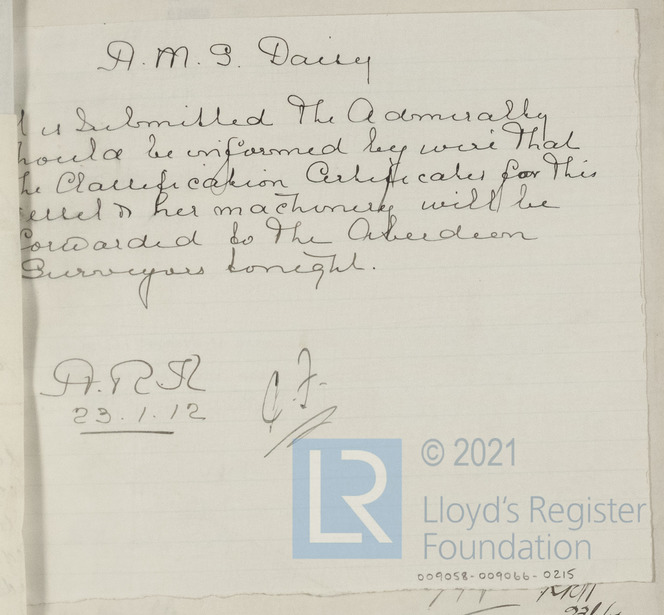 H.M.S. Daisy
t is Submitted The Admiralty
hould be informed by wire that
he Classification Certificates for this
essel & her machinery will be
forwarded to the Aberdeen
Surveyors tonight.
23.1.12
LR
© 2021
Lloyd's Register
Foundation
009058-009066-0215